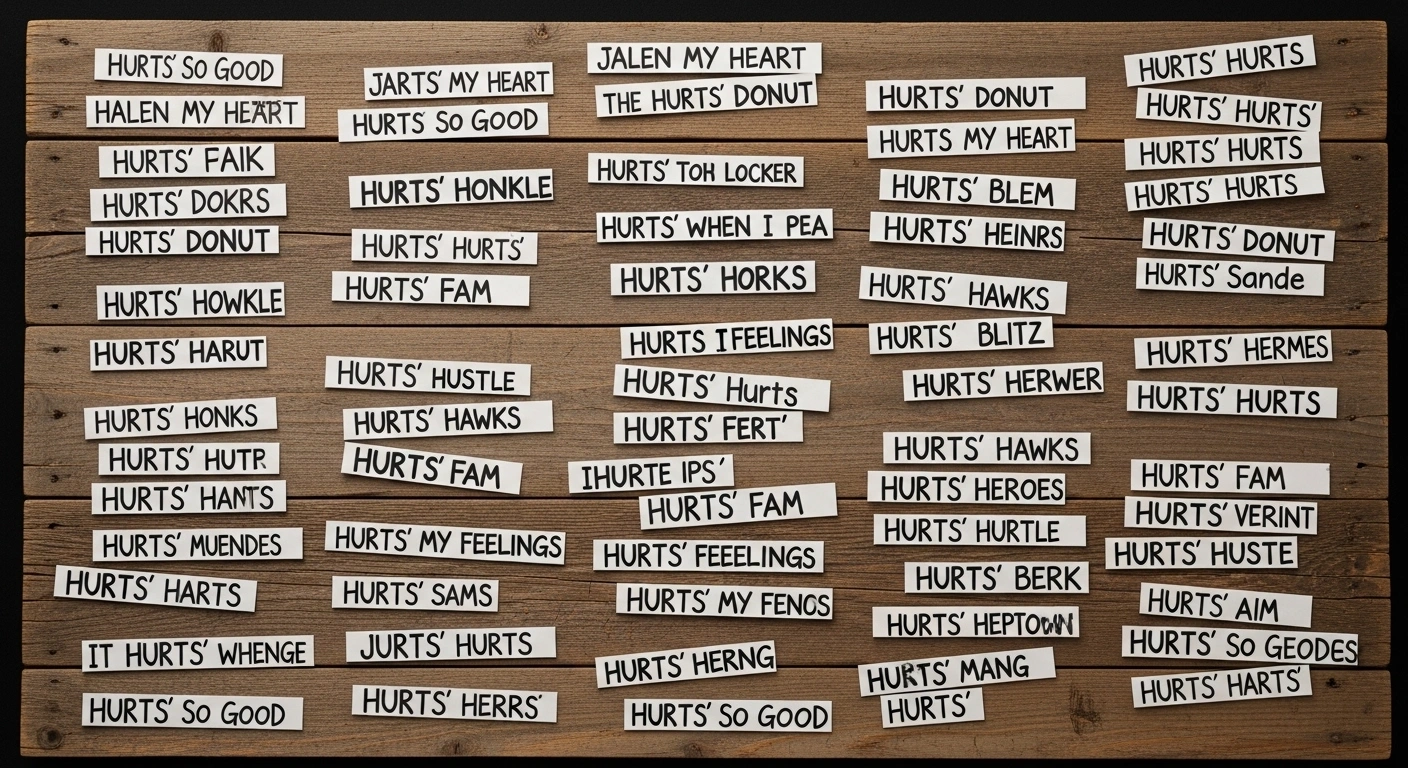 HURTS' SO GOOD
HALEN MY HEART
HURTS' FAIK
HURTS' DOKRS
HURTS' DONUT
HURTS' HOWKLE
HURTS' HARUT
HURTS' HONKS
HURTS' HUTP.
HURTS' HANTS
HURTS' MUENDES
HURTS' HARTS
IT HURTS' WHENGE
HURTS' SO GOOD
JARTS' MY HEART
HURTS' SO GOOD
HURTS' HONKLE
HURTS' HURTS'
HURTS' FAM
HURTS' HUSTLE
HURTS' HAWKS
HURTS' FAM
HURTS' MY FEELINGS
HURTS' SAMS
JURTS' HURTS
HURTS' HERRS'
JALEN MY HEART
THE HURTS' DONUT
HURTS' TOH LOCKER
HURTS' WHEN I PEA
HURTS' HORKS
HURTS IFEELINGS
HURTS' Hurts
HURTS' FERT'
IHURTE IPS'
HURTS' FAM
HURTS' FEEELINGS
HURTS' MY FENOS
HURTS' HERNG
HURTS' SO GOOD
HURTS' DONUT
HURTS MY HEART
HURTS' BLEM
HURTS' HEINRS
HURTS' HAWKS
HURTS' BLITZ
HURTS' HERWER
HURTS' HAWKS
HURTS' HEROES
HURTS' HURTLE
HURTS' BERK
HURTS' HEPTOWN
HURTS' MANG
HURTS'
HURTS' HURTS
HURTS' HURTS'
HURTS' HURTS
HURTS' HURTS
HURTS' DONUT
HURTS' Sande
HURTS' HERMES
HURTS' HURTS
HURTS' FAM
HURTS' VERINT
HURTS' HUSTE
HURTS' AIM
HURTS' SO GEODES
HURTS' HARTS'